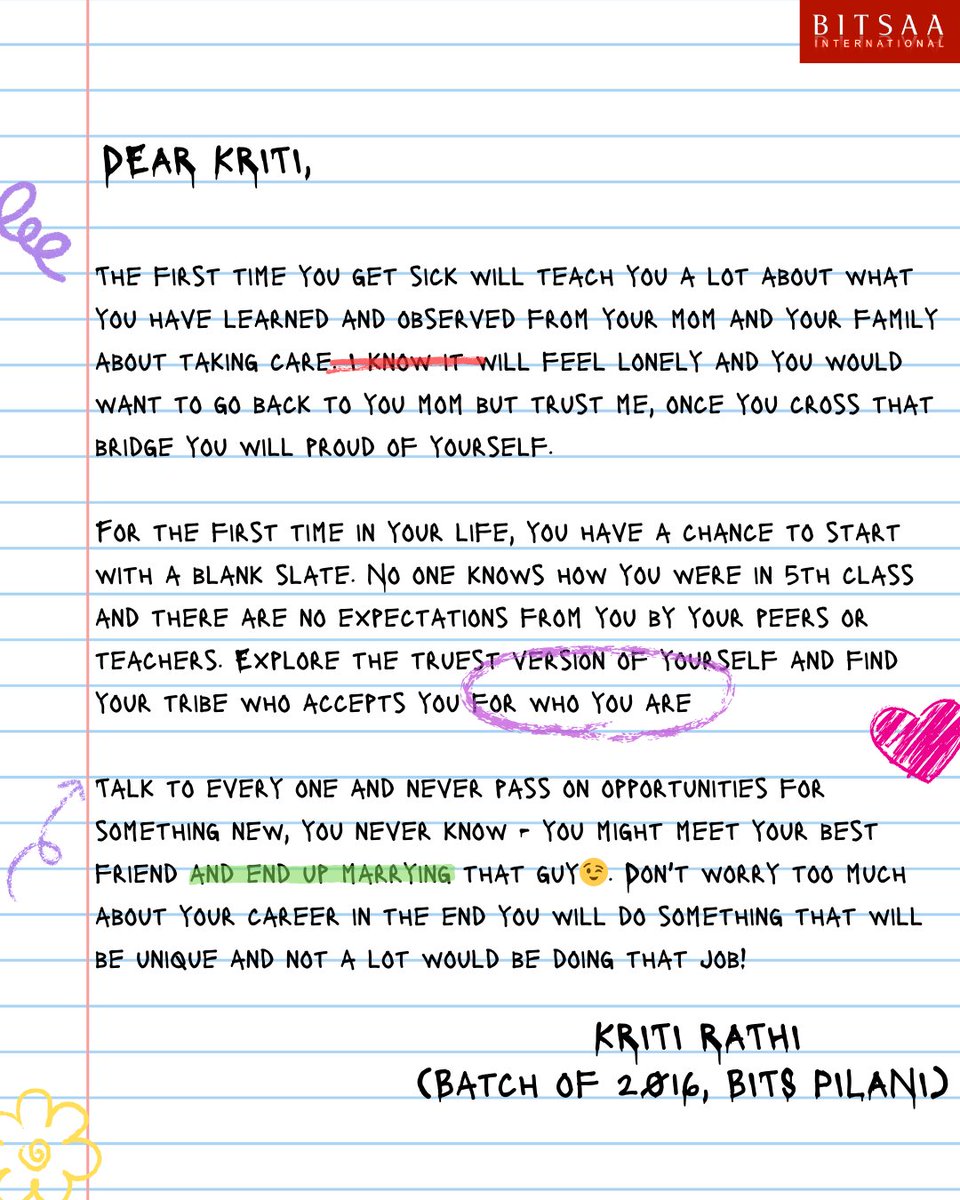 BITSAA
INTERNATIONAL
DEAR KRITI,
THE FIRST TIME YOU GET SICK WILL TEACH YOU A LOT ABOUT WHAT
YOU HAVE LEARNED AND OBSERVED FROM YOUR MOM AND YOUR FAMILY
ABOUT TAKING CARE. I KNOW IT WILL FEEL LONELY AND YOU WOULD
WANT TO GO BACK TO YOU MOM BUT TRUST ME, ONCE YOU CROSS THAT
BRIDGE YOU WILL PROUD OF YOURSELF.
FOR THE FIRST TIME IN YOUR LIFE, YOU HAVE A CHANCE TO START
WITH A BLANK SLATE. NO ONE KNOWS HOW YOU WERE IN 5TH CLASS
AND THERE ARE NO EXPECTATIONS FROM YOU BY YOUR PEERS OR
TEACHERS. EXPLORE THE TRUEST VERSION OF YOURSELF AND FIND
YOUR TRIBE WHO ACCEPTS YOU FOR WHO YOU ARE
TALK TO EVERY ONE AND NEVER PASS ON OPPORTUNITIES FOR
SOMETHING NEW, YOU NEVER KNOW - YOU MIGHT MEET YOUR BEST
FRIEND AND END UP MARRYING THAT GUY😉. DON'T WORRY TOO MUCH
ABOUT YOUR CAREER IN THE END YOU WILL DO SOMETHING THAT WILL
BE UNIQUE AND NOT A LOT WOULD BE DOING THAT JOB!
KRITI RATHI
(BATCH OF 2016, BITS PILANI)